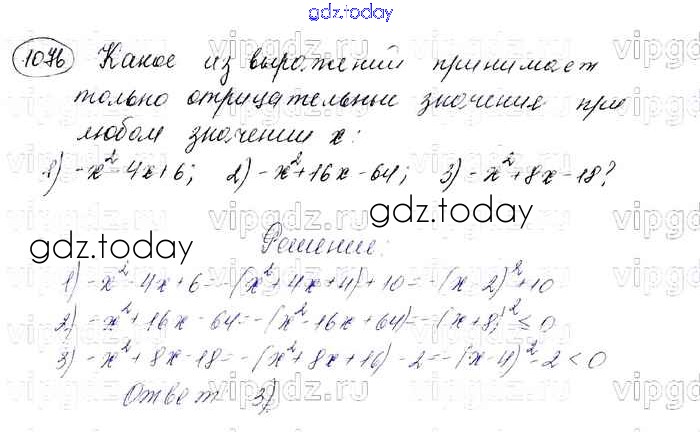 gdz.today
1076 Какое из выражений принимает
только отрицательные значения при
любом значении x:
1) -x²-4x+6; 2) -x²+16x-64; 3) -x²+8x-18?
gdz.today
gdz.today
Решение:
1) -x²-4x+6=-(x²+4x+4)+10=-(x-2)²+10
2) -x²+16x-64=-(x²-16x+64)=-(x+8)²≤0
3) -x²+8x-18=-(x²+8x+16)-2=-(x-4)²-2<0
Ответ 3)